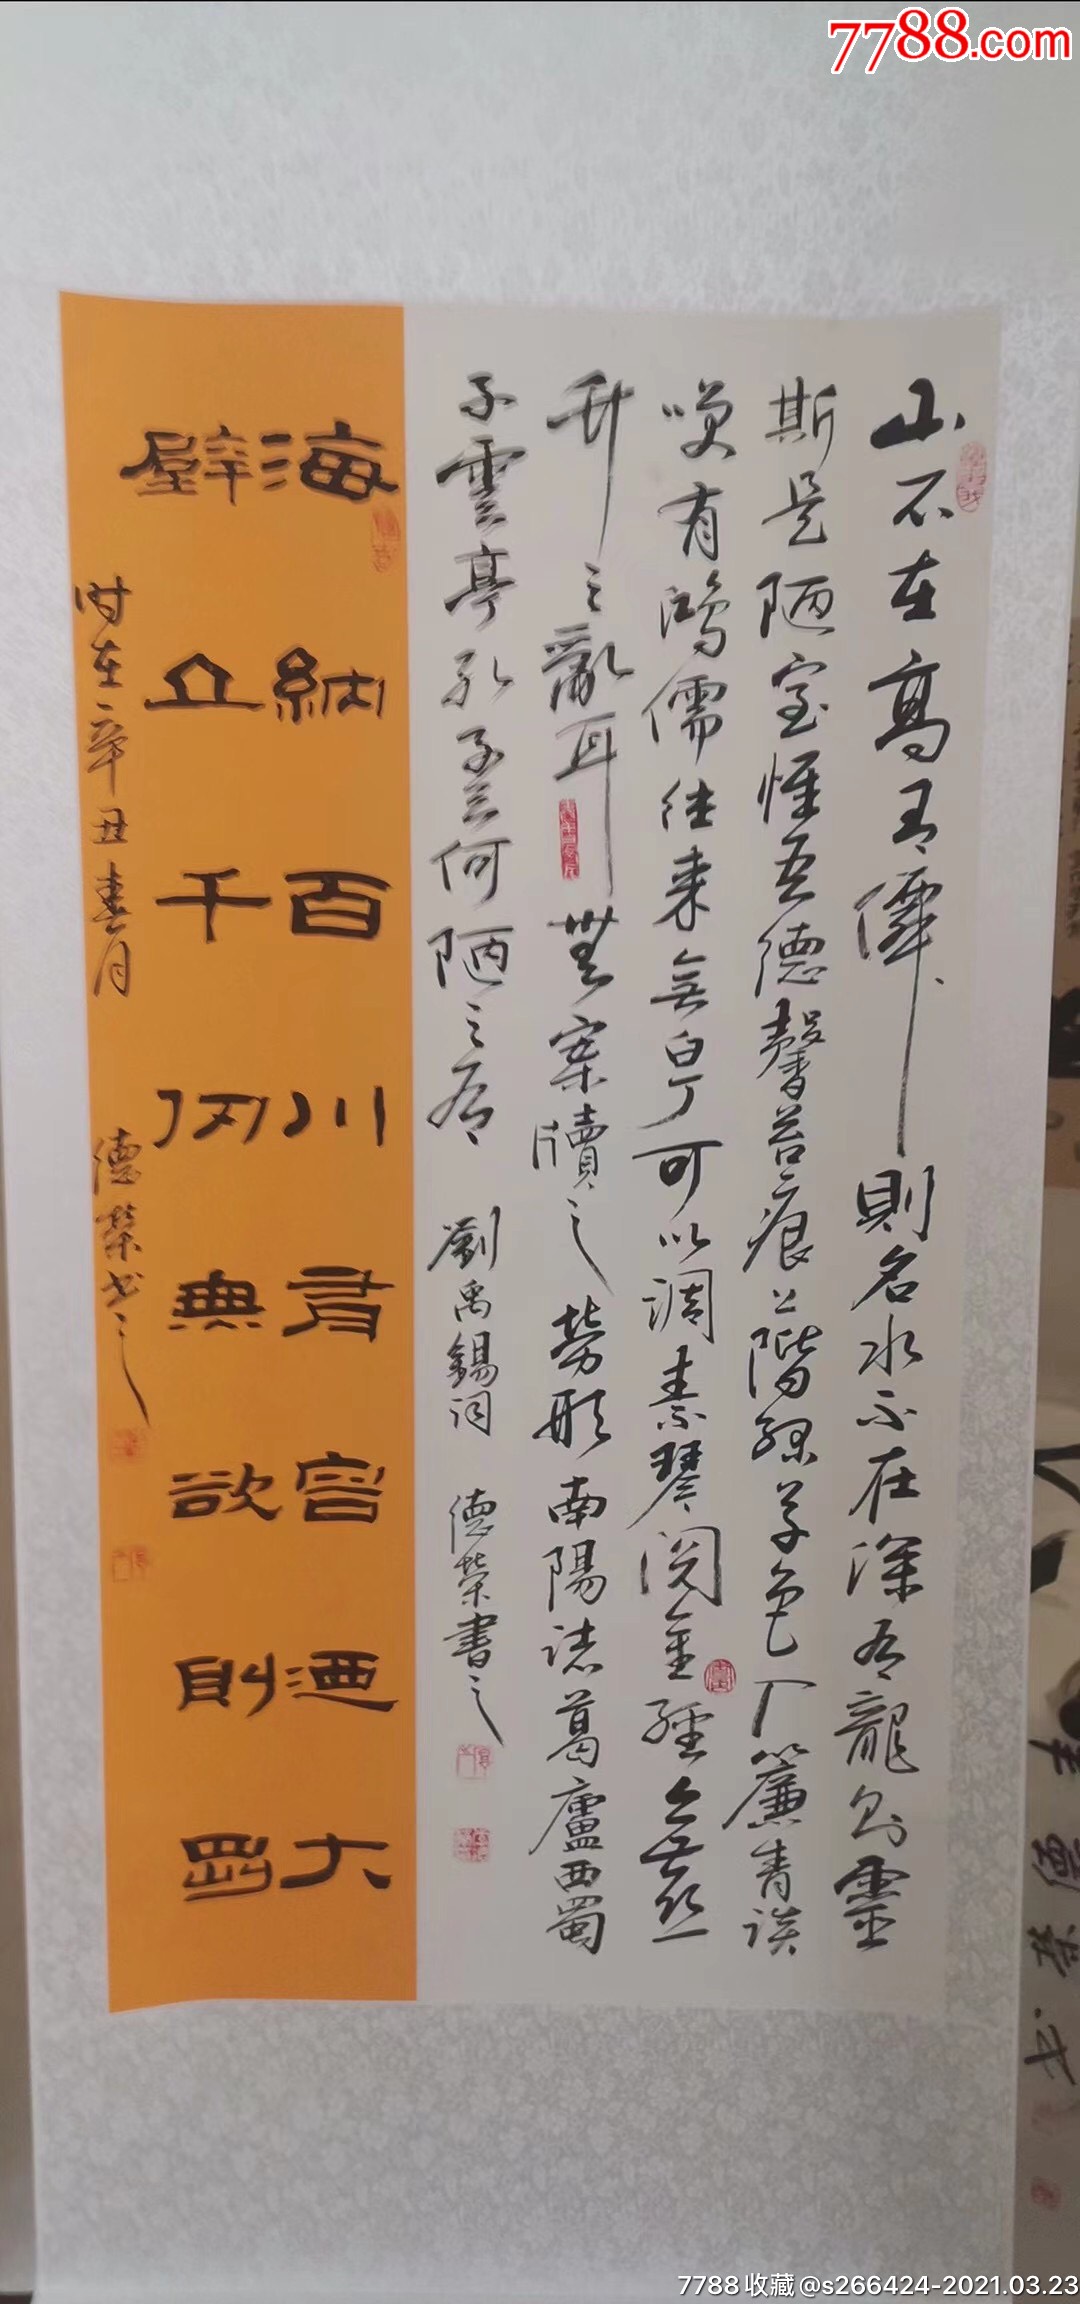 7788.com
山不在高有僊則名水不在深有龍則靈
斯是陋室惟吾德馨苔痕上階綠草色入簾青談
咲有鴻儒往來無白丁可以調素琴閱金經無絲
竹之亂耳無案牘之勞形南陽諸葛廬西蜀
子雲亭孔子云何陋之有 劉禹錫詞 德榮書之
海納百川有容迺大
壁立千仞無欲則剛
时在辛丑春月 德榮书之
7788收藏@s266424-2021.03.23